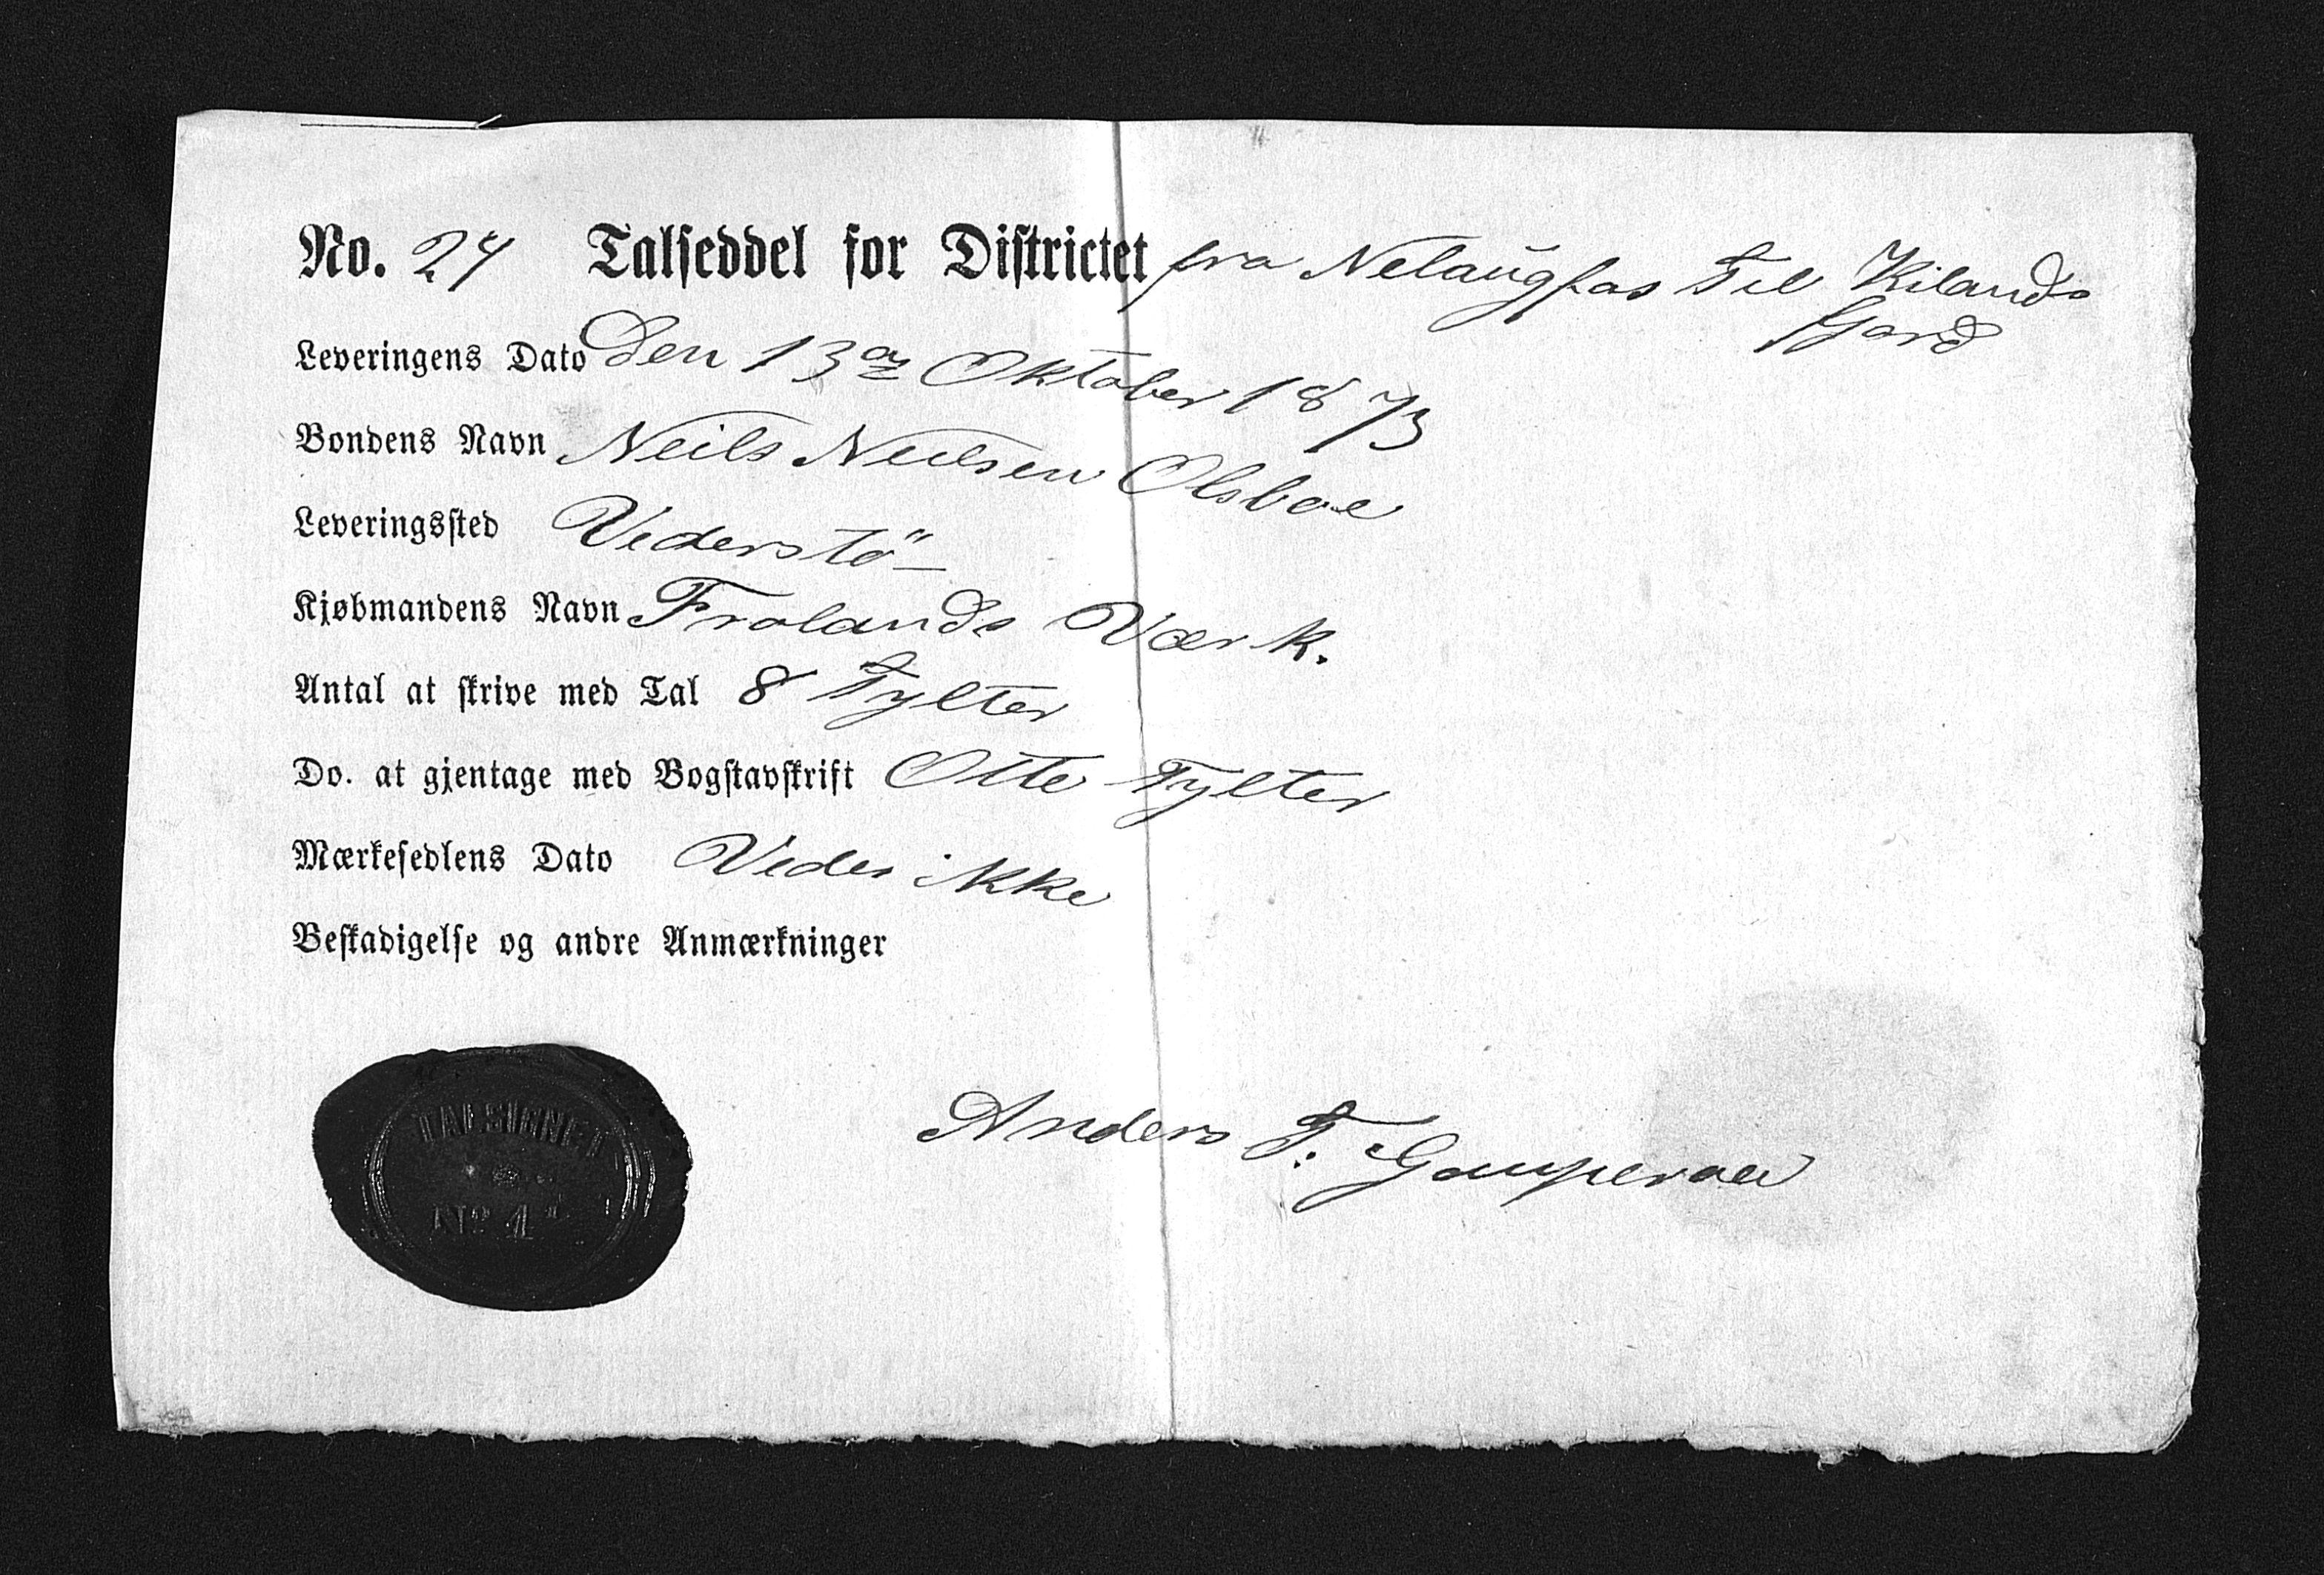 No. 24 Talseddel for Districtet fra Nelaugfos til Kilands
Gard
Leveringens Dato Den 13de Oktober 1873
Bondens Navn Neils Neilsen Olsboe
Leveringssted Vederstö
Kjøbmandens Navn Frolands Værk.
Antal at skrive med Tal 8 Tylter
Do. at gjentage med Bogstavskrift Otte Tylter
Mærkesedlens Dato Vides ikke
Beskadigelse og andre Anmærkninger
TALSIGNET
No 1
Anders T.